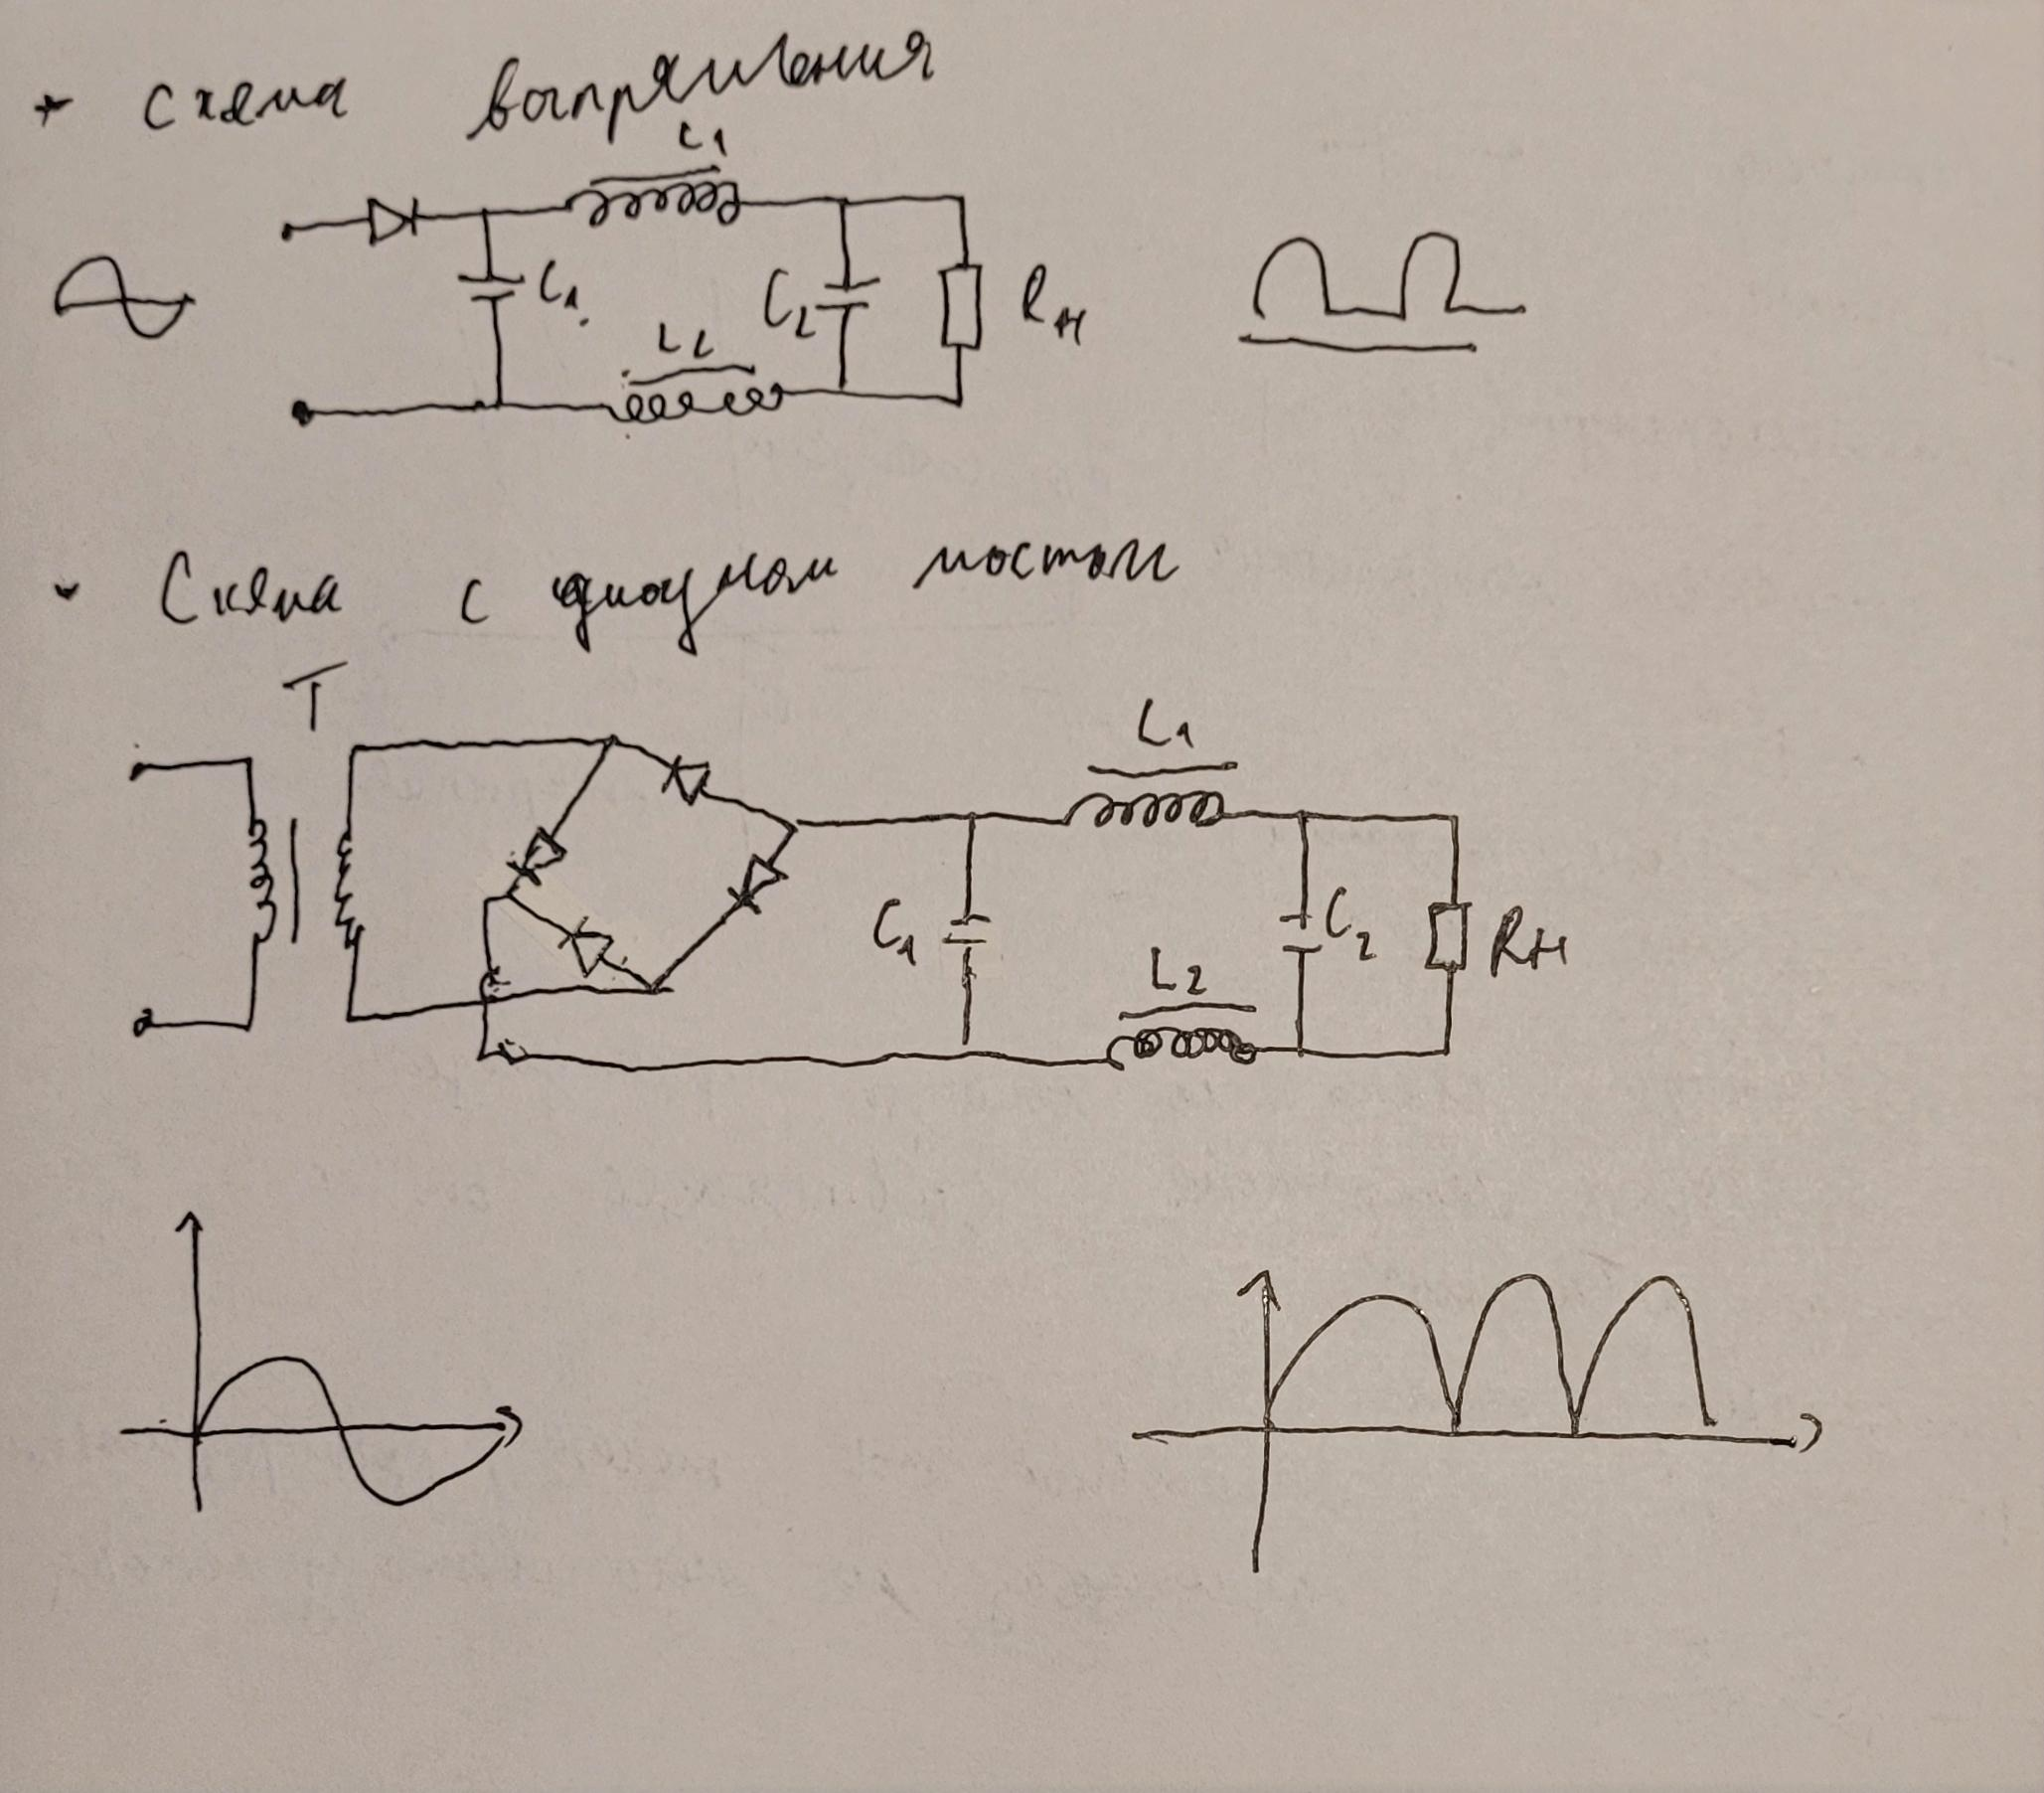 схема выпрямления
L1
C1
C2
Rн
L2
Схема с диодном мостом
T
L1
C1
C2
Rн
L2